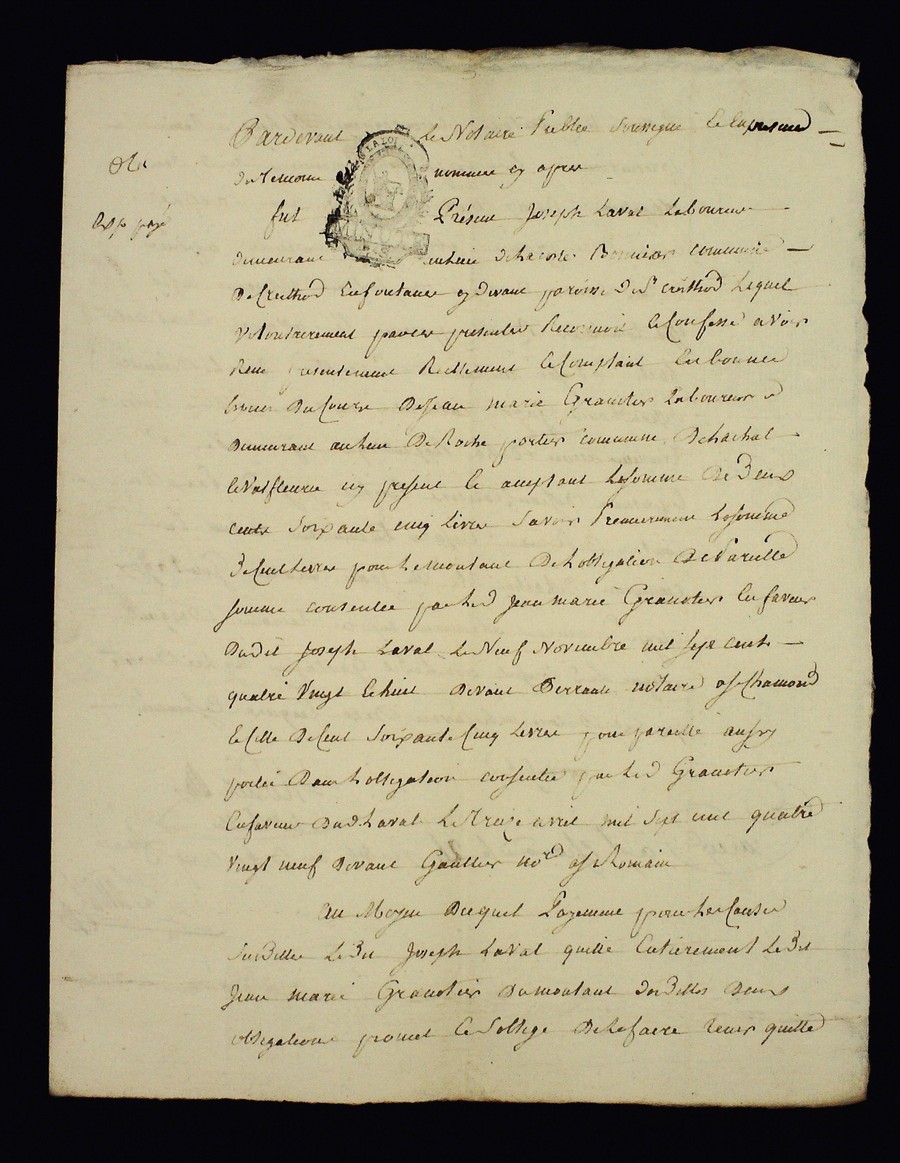 Pardevant le Notaire Public soussigné et en presence
des temoins nommés cy apres
fut Présent Joseph Laval Laboureur
LA LOI
MINUTE
demeurant
De St Cristhod En fontane cy devant paroisse De St cristhod Lequel
Volontairement par ces presentes Reconnoit et Confesse avoir
Reçu presentement Reellement et Comptant En bonnes
Especes Du Cours De Jean marie Granotier Laboureur
Demeurant au lieu De Roche portier commune De Lachal
et Valfleurie icy present et aceptant La somme De Deux
cents soixante cinq Livres savoir Premierement La somme
De Cent Livres pour le montant De L'obligation De Pareille
somme consentie par led Jean marie Granotier En faveur
Dudit Joseph Laval Le Neuf Novembre mil sept cent
quatre Vingt Et huit devant notaire a St Chamond
Et Celle De Cent soixante Cinq Livres pour pareille aussy
portée Dans L'obligation consentie par led Granotier
En faveur Dud Laval Le Treize avril mil sept cent quatre
vingt neuf Devant Gaultier no.re a St Romain
Au Moyen Duquel Payement pour les Causes
Sus Dittes Le Dit Joseph Laval quitte Entierement Le Dit
Jean marie Granotier Du montant Des Dittes Deux
obligations promet Et S'oblige De Le faire tenir quitte